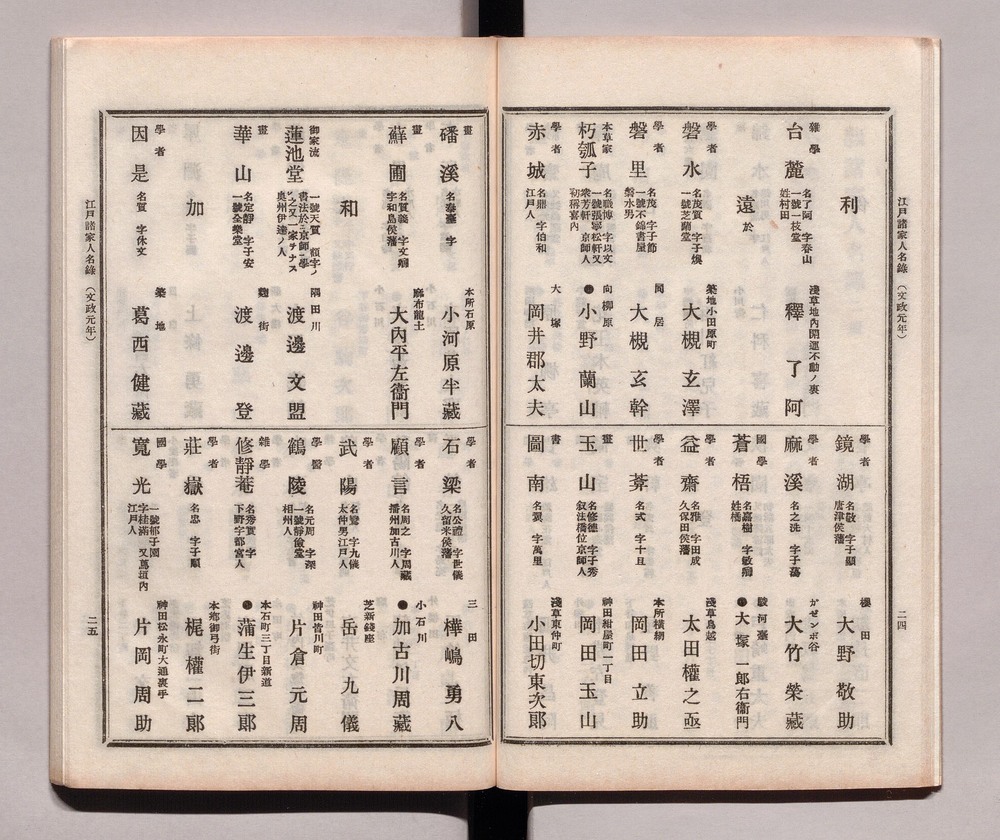 江戸諸家人名錄(文政元年)
二四
利
雜學
台麓
名了阿 字春山
一號一枝堂
姓村田
淺草地內開運不動ノ裏
釋了阿
遠於
學者
磐水
名茂質 字子煥
一號芝蘭堂
築地小田原町
大槻玄澤
學者
磐里
名茂 字子節
一號不錦書屋
磐水男
同居
大槻玄幹
本草家
朽瓠子
名職博 字以文
一號張寧松軒又
衆芳軒 京師人
初稱喜內
向柳原
●小野蘭山
學者
赤城
名鼎 字伯和
江戸人
大塚
岡井郡太夫
學者
鏡湖
名敬 字子顯
唐津侯藩
櫻田
大野敬助
學者
麻溪
名之洗 字子蕩
かゼンボ谷
大竹榮藏
國學
蒼梧
名嘉樹 字敏卿
姓橘
駿河臺
●大塚一郎右衞門
學者
益齋
名雅 字田成
久保田侯藩
淺草鳥越
太田權之亟
學者
世莾
名式 字十亘
本所橫網
岡田立助
畫
玉山
名修德 字子秀
叙法橋位京師人
神田紺屋町一丁目
岡田玉山
書
圖南
名翼 字萬里
淺草東仲町
小田切東次郎
畫
磻溪
名泰臺 字
本所石原
小河原半藏
畫
蘇圃
名質義 字文卿
宇和島侯藩
麻布龍土
大內平左衞門
和
御家流
蓮池堂
一號天質 額字ノ
書法於ニ京師ニ學
ビ之又一家ヲナス
奥州伊達ノ人
隅田川
渡邊文盟
畫
華山
名定靜 字子安
一號全樂堂
麹街
渡邊登
加
學者
因是
名質 字休文
築地
葛西健藏
學者
石梁
名公禮 字世儀
久留米侯藩
三田
樺嶋勇八
學者
顧言
名周之 字周藏
播州加古川人
小石川
●加古川周藏
學者
武陽
名鸞 字九儀
太仲男江戸人
芝新錢座
岳九儀
學醫
鶴陵
名元周 字深
一號靜儉堂
相州人
神田皆川町
片倉元周
雜學
修靜菴
名秀實 字
下野宇都宮人
本石町三丁目新道
●蒲生伊三郎
學者
莊嶽
名忠 字子順
本鄕御弓街
梶權二郎
國學
寬光
一號郁子園
字桂滿 又葛垣內
江戸人
神田松永町大通裏手
片岡周助
江戸諸家人名錄(文政元年)
二五